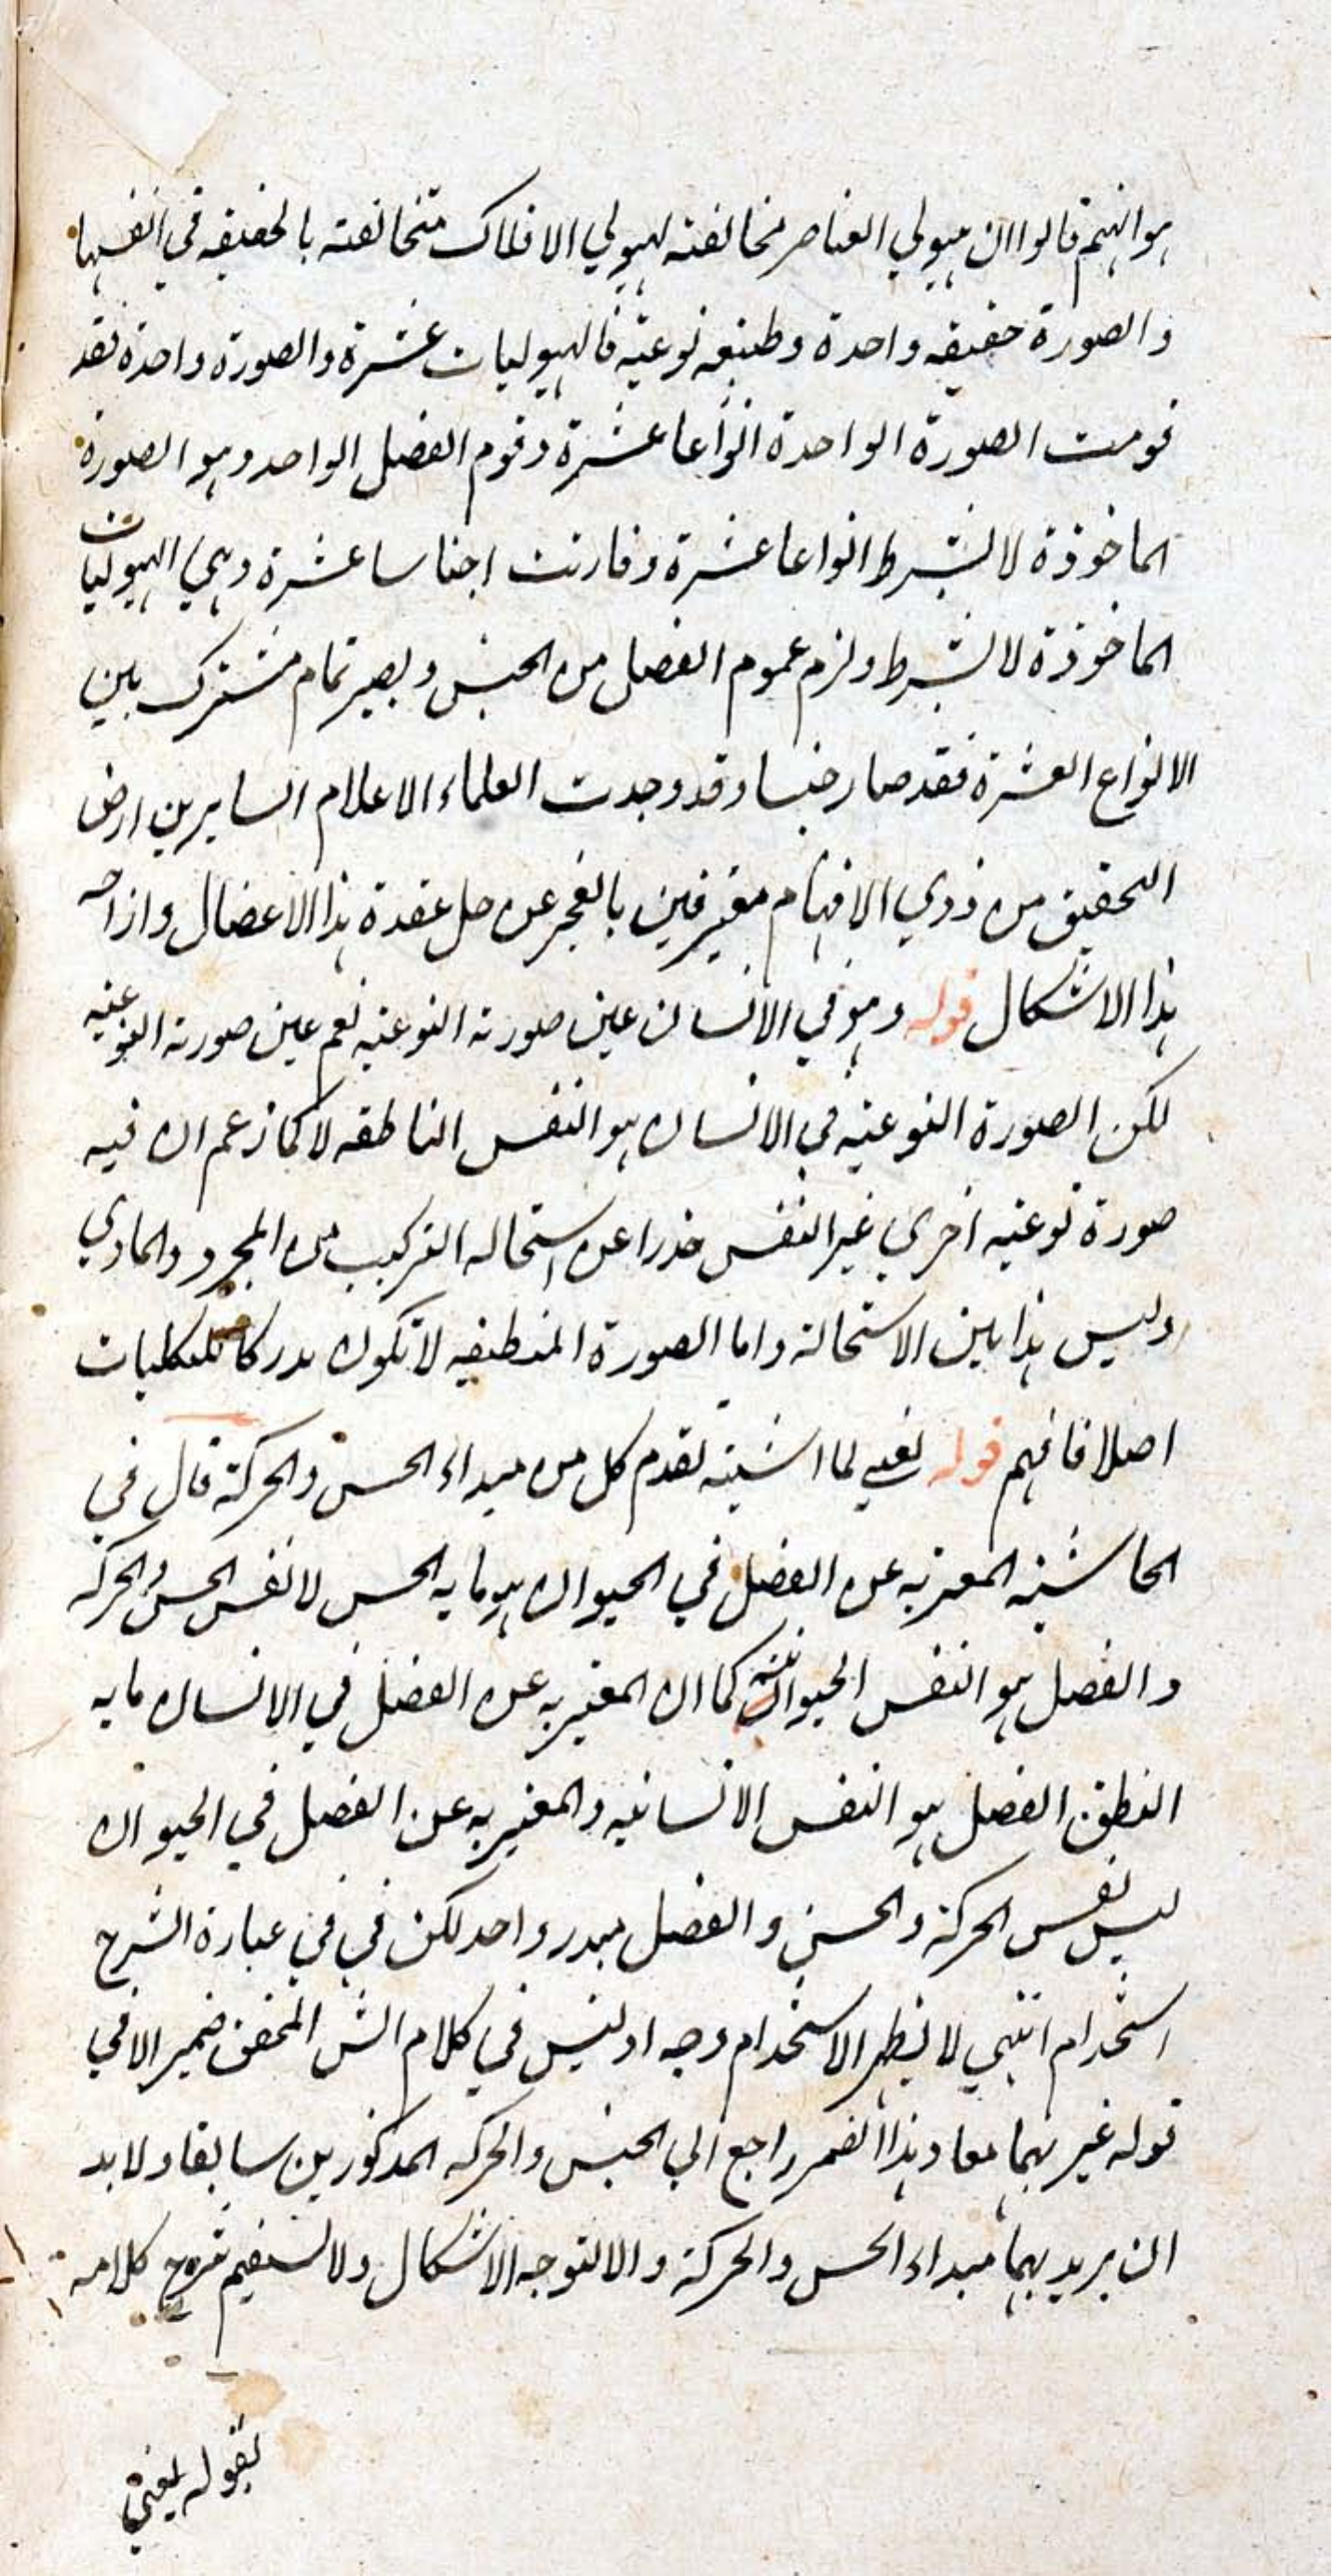 هو انهم قالوا ان هيولي العناصر مخالفته لهيولي الافلاك متخالفته بالحقيقه في انفسها
والصورة حقيقه واحدة وطبيعه نوعيه فالهيوليات عشرة والصورة واحدة فقد
قومت الصورة الواحدة انواعا عشرة وقوم الفصل الواحد وهو الصورة
الماخوذة لا بشرط انواعا عشرة وقارنت اجناسا عشرة وهي الهيوليات
الماخوذة لا بشرط ولزم عموم الفصل من الجنس ويصير تمام مشترك بين
الانواع العشرة فقد صار جنسا وقد وجدت العلماء الاعلام السايرين ارض
التحقيق من ذوي الافهام معترفين بالعجز عن حل عقدة هذا الاعضال وازاحه
هذا الاشكال قوله وهو في الانسان عين صورته النوعيه نعم عين صورته النوعيه
لكن الصورة النوعيه في الانسان هو النفس الناطقه لا كما زعم ان فيه
صورة نوعيه اخري غير النفس حذرا عن استحاله التركيب من المجرد والمادي
وليس هذا بين الاستحالة واما الصورة المنطبعه لا تكون مدركا للكليات
اصلا فافهم قوله يعني لما اشتبه تقدم كل من مبداء الحس والحركة قال في
الحاشيه المعبر به عن الفصل في الحيوان هو ما به الحس لا نفس الحس والحركه
والفصل هو النفس الحيوانية كما ان المعبر به عن الفصل في الانسان ما به
النطق الفصل هو النفس الانسانيه والمعبر به عن الفصل في الحيوان
ليس نفس الحركة والحس والفصل مبدء واحد لكن في في عبارة الشرح
استخدام انتهي لا يظهر الاستخدام وجه اذ ليس في كلام الش المحقق ضمير الا في
قوله غير بهما معا وهذا الضمر راجع الي الحبس والحركه المذكورين سابقا ولا بد
ان يريد بهما مبداء الحس والحركة والا لتوجه الاشكال ولا يستقيم كلامه
بقوله يعني